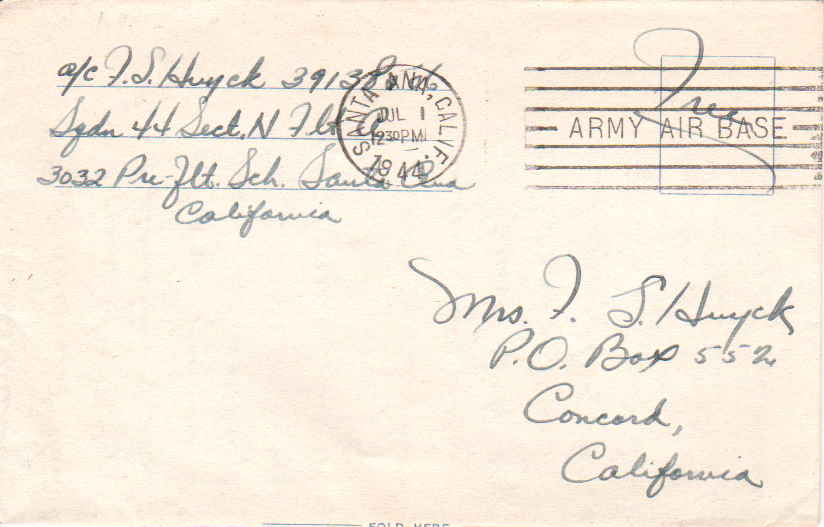 a/c F. S. Huyck 3913
Sqdn 44 Sect. N Flt
3032 Pre-Flt. Sch. Santa Ana
California
SANTA ANA, CALIF.
JUL 1
12 30 PM
1944
Free
ARMY AIR BASE
Mrs. F. S. Huyck
P.O. Box 552
Concord,
California
FOLD HERE